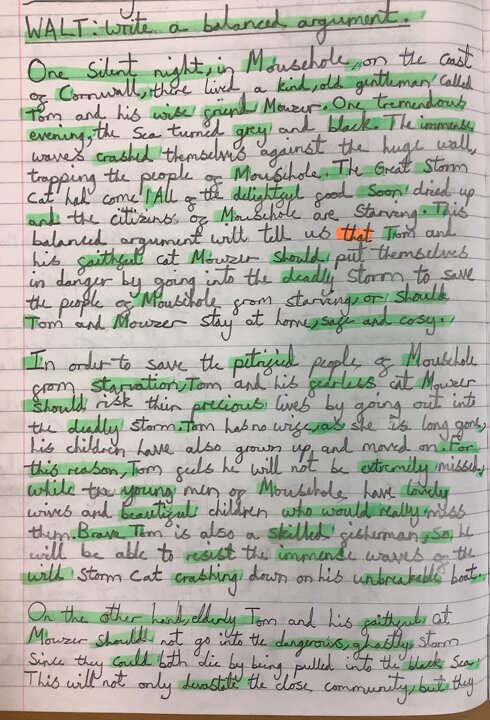 WALT: write a balanced argument.
One silent night, in Mousehole, on the cost
of Cornwall, there lived a kind, old gentleman called
Tom and his wise friend Mowzer. One tremendous
evening, the Sea turned grey and black. The immense
waves crashed themselves against the huge wall,
trapping the people of Mousehole. The Great Storm
Cat had come! All of the delightful good soon dried up
and the citizens of Mousehole are starving. This
balanced argument will tell us that Tom and
his faithful cat Mowzer should put themselves
in danger by going into the deadly storm to save
the people of Mousehole from starving, or should
Tom and Mowzer stay at home, safe and cosy.
In order to save the petrified people of Mousehole
from starvation, Tom and his fearless cat Mowzer
should risk their precious lives by going out into
the deadly storm. Tom has no wife, as she is long gone,
his children have also grown up and moved on. For
this reason, Tom feels he will not be extremily missed,
while the young men of Mousehole have lovely
wives and beautiful children who would really miss
them. Brave Tom is also a skilled fisherman, so, he
will be able to resist the immense waves of the
will Storm Cat crashing down on his unbreakable boat.
On the other hand, elderly Tom and his faithful cat
Mowzer should not go into the dangerous, ghastly storm
Since they could both die by being pulled into the black Sea.
This will not only devastate the close community, but they